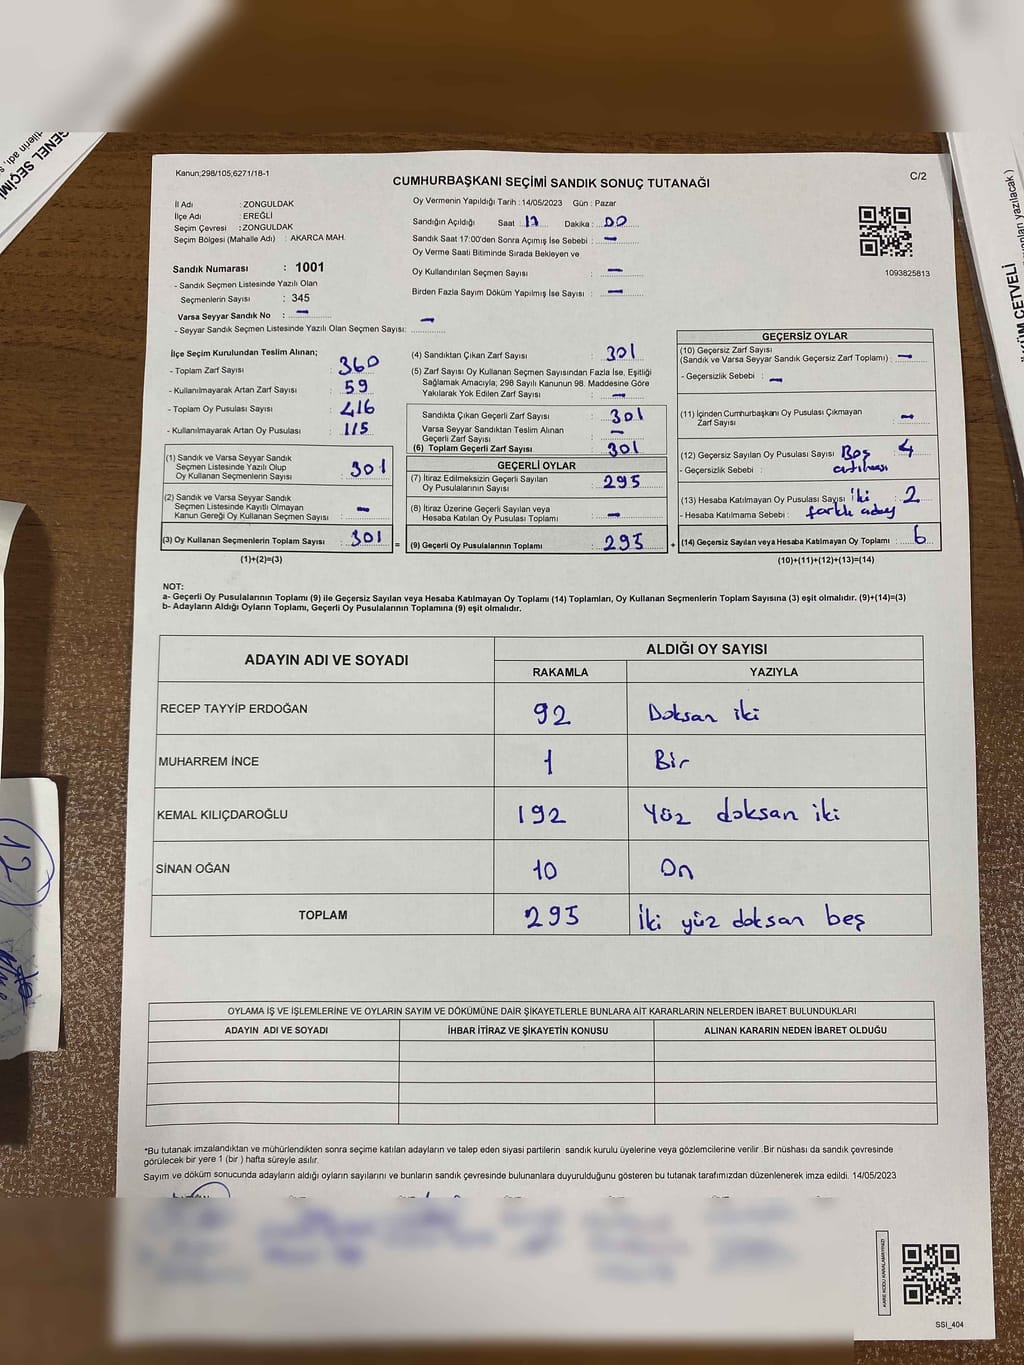 GENEL SEÇİMİ
Kanun;298/105,6271/18-1
C/2
CUMHURBAŞKANI SEÇİMİ SANDIK SONUÇ TUTANAĞI
İl Adı : ZONGULDAK
İlçe Adı : EREĞLİ
Seçim Çevresi : ZONGULDAK
Seçim Bölgesi (Mahalle Adı) : AKARCA MAH.
Oy Vermenin Yapıldığı Tarih : 14/05/2023 Gün : Pazar
Sandığın Açıldığı Saat : 17 Dakika : 00
Sandık Saat 17:00'den Sonra Açımış İse Sebebi : -
Oy Verme Saati Bitiminde Sırada Bekleyen ve
Oy Kullandırılan Seçmen Sayısı : -
Birden Fazla Sayım Döküm Yapılmış İse Sayısı : -
1093825813
Sandık Numarası : 1001
- Sandık Seçmen Listesinde Yazılı Olan
Seçmenlerin Sayısı : 345
Varsa Seyyar Sandık No : -
- Seyyar Sandık Seçmen Listesinde Yazılı Olan Seçmen Sayısı: -
İlçe Seçim Kurulundan Teslim Alınan;
- Toplam Zarf Sayısı : 360
- Kullanılmayarak Artan Zarf Sayısı : 59
- Toplam Oy Pusulası Sayısı : 416
- Kullanılmayarak Artan Oy Pusulası : 115
(1) Sandık ve Varsa Seyyar Sandık
Seçmen Listesinde Yazılı Olup
Oy Kullanan Seçmenlerin Sayısı : 301
(2) Sandık ve Varsa Seyyar Sandık
Seçmen Listesinde Kayıtlı Olmayan
Kanun Gereği Oy Kullanan Seçmen Sayısı : -
(3) Oy Kullanan Seçmenlerin Toplam Sayısı : 301
(1)+(2)=(3)
(4) Sandıktan Çıkan Zarf Sayısı : 301
(5) Zarf Sayısı Oy Kullanan Seçmen Sayısından Fazla İse, Eşitliği
Sağlamak Amacıyla; 298 Sayılı Kanunun 98. Maddesine Göre
Yakılarak Yok Edilen Zarf Sayısı : -
Sandıkta Çıkan Geçerli Zarf Sayısı : 301
Varsa Seyyar Sandıktan Teslim Alınan
Geçerli Zarf Sayısı : -
(6) Toplam Geçerli Zarf Sayısı : 301
GEÇERLİ OYLAR
(7) İtiraz Edilmeksizin Geçerli Sayılan
Oy Pusulalarının Sayısı : 295
(8) İtiraz Üzerine Geçerli Sayılan veya
Hesaba Katılan Oy Pusulası Toplamı : -
= (9) Geçerli Oy Pusulalarının Toplamı : 295 +
GEÇERSİZ OYLAR
(10) Geçersiz Zarf Sayısı
(Sandık ve Varsa Seyyar Sandık Geçersiz Zarf Toplamı) : -
- Geçersizlik Sebebi : -
(11) İçinden Cumhurbaşkanı Oy Pusulası Çıkmayan
Zarf Sayısı : -
(12) Geçersiz Sayılan Oy Pusulası Sayısı Boş : 4
- Geçersizlik Sebebi : atılması
(13) Hesaba Katılmayan Oy Pusulası Sayısı iki : 2
- Hesaba Katılmama Sebebi : farklı aday
(14) Geçersiz Sayılan veya Hesaba Katılmayan Oy Toplamı : 6
(10)+(11)+(12)+(13)=(14)
NOT:
a- Geçerli Oy Pusulalarının Toplamı (9) ile Geçersiz Sayılan veya Hesaba Katılmayan Oy Toplamı (14) Toplamları, Oy Kullanan Seçmenlerin Toplam Sayısına (3) eşit olmalıdır. (9)+(14)=(3)
b- Adayların Aldığı Oyların Toplamı, Geçerli Oy Pusulalarının Toplamına (9) eşit olmalıdır.
ADAYIN ADI VE SOYADI
ALDIĞI OY SAYISI
RAKAMLA YAZIYLA
RECEP TAYYİP ERDOĞAN 92 Doksan iki
MUHARREM İNCE 1 Bir
KEMAL KILIÇDAROĞLU 192 Yüz doksan iki
SİNAN OĞAN 10 On
TOPLAM 295 İki yüz doksan beş
OYLAMA İŞ VE İŞLEMLERİNE VE OYLARIN SAYIM VE DÖKÜMÜNE DAİR ŞİKAYETLERLE BUNLARA AİT KARARLARIN NELERDEN İBARET BULUNDUKLARI
ADAYIN ADI VE SOYADI İHBAR İTİRAZ VE ŞİKAYETİN KONUSU ALINAN KARARIN NEDEN İBARET OLDUĞU
*Bu tutanak imzalandıktan ve mühürlendikten sonra seçime katılan adayların ve talep eden siyasi partilerin sandık kurulu üyelerine veya gözlemcilerine verilir .Bir nüshası da sandık çevresinde
görülecek bir yere 1 (bir ) hafta süreyle asılır.
Sayım ve döküm sonucunda adayların aldığı oyların sayılarını ve bunların sandık çevresinde bulunanlara duyurulduğunu gösteren bu tutanak tarafımızdan düzenlenerek imza edildi. 14/05/2023
KARE KODU KARALAMAYINIZ!
SSI_404
12